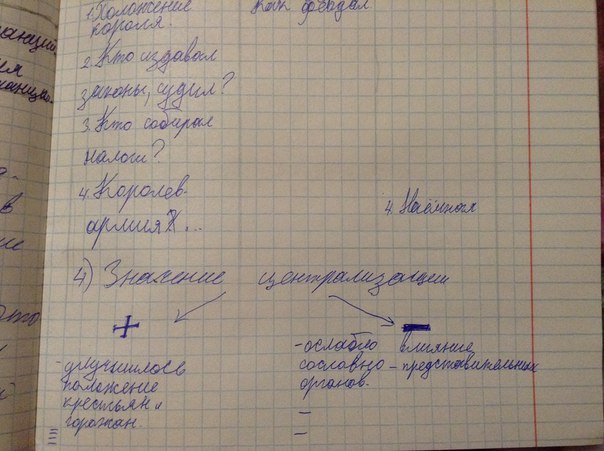 1. Положение Как феодал
короля.
2. Кто издавал
законы, судил?
3. Кто собирал
налоги?
4. Королев.
армия ... 4. Наёмная
4) Значение централизации
+ −
- улучшилось
положение
крестьян и
горожан.
- ослабло влияние
сословно - представительных
органов.
-
-